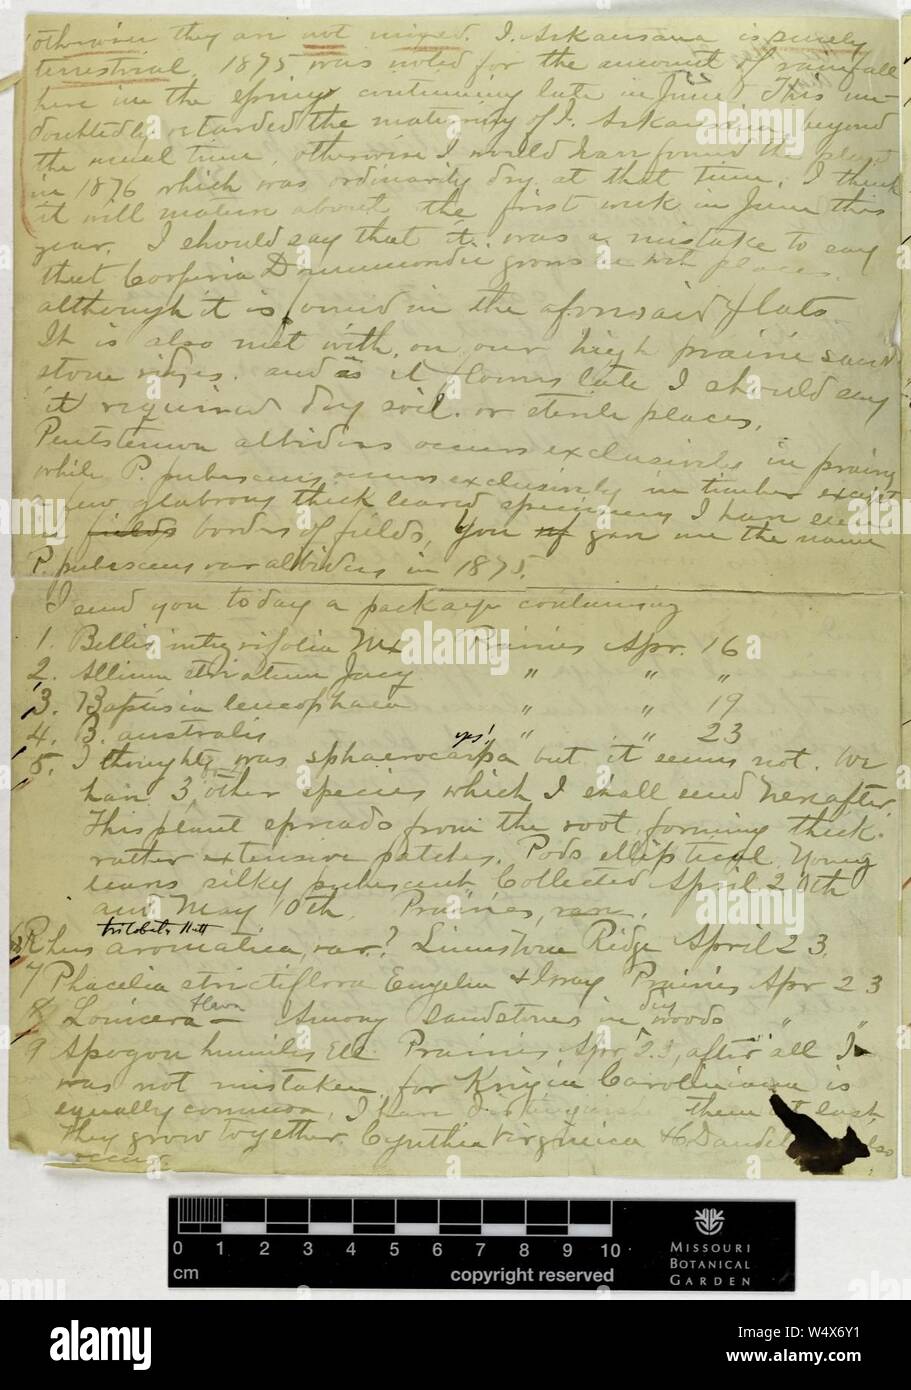 otherwise they are not mixed. I. Arkansana is purely
terrestrial. 1875 was noted for the amount of rainfall
here in the spring continuing late in June. This un-
doubtedly retarded the maturing of I. Arkansana beyond
the usual time, otherwise I would have found the plant
in 1876 which was ordinarily dry at that time. I think
it will mature about the first week in June this
year. I should say that it was a mistake to say
that Cooperia Drummondii grows in wet places,
although it is found in the aforesaid flats
It is also met with on our high prairie sand-
stone ridges. and as it flowers late I should say
it required dry soil. or sterile places.
Pentstemon albidus occurs exclusively in prairie
while P. pubescens occurs exclusively in timber except
a few glabrous thick leaved specimens I have seen
in fields borders of fields, You gave me the name
P. pubescens var albidus in 1875.
I send you today a package containing
1. Bellis integrifolia Mx Prairies Apr. 16
2. Allium striatum Jacq " " "
3. Baptisia leucophaea " " 19
4. B. australis " " 23
yes!
5. I thought was sphaerocarpa but it seems not. We
have 3 other species which I shall send hereafter.
This plant spreads from the root, forming thick
rather extensive patches. Pods elliptical. Young
leaves silky pubescent. Collected April 20th
and May 10th. Prairies, rare.
trilobata Nutt
6 Rhus aromatica, var.? Limestone Ridge April 23.
7 Phacelia strictiflora Engelm & Gray Prairies Apr 23
flava
dry
8 Lonicera — Among sandstones in woods " "
9 Apogon humilis Ell. Prairies Apr 23, after all I
was not mistaken, for Krigia Caroliniana is
equally common. I can distinguish them at last
They grow together. Cynthia Virginica & C. Dandel also
occurs
0 1 2 3 4 5 6 7 8 9 10
cm
copyright reserved
MISSOURI
BOTANICAL
GARDEN
alamy
Image ID: W4X6Y1
www.alamy.com